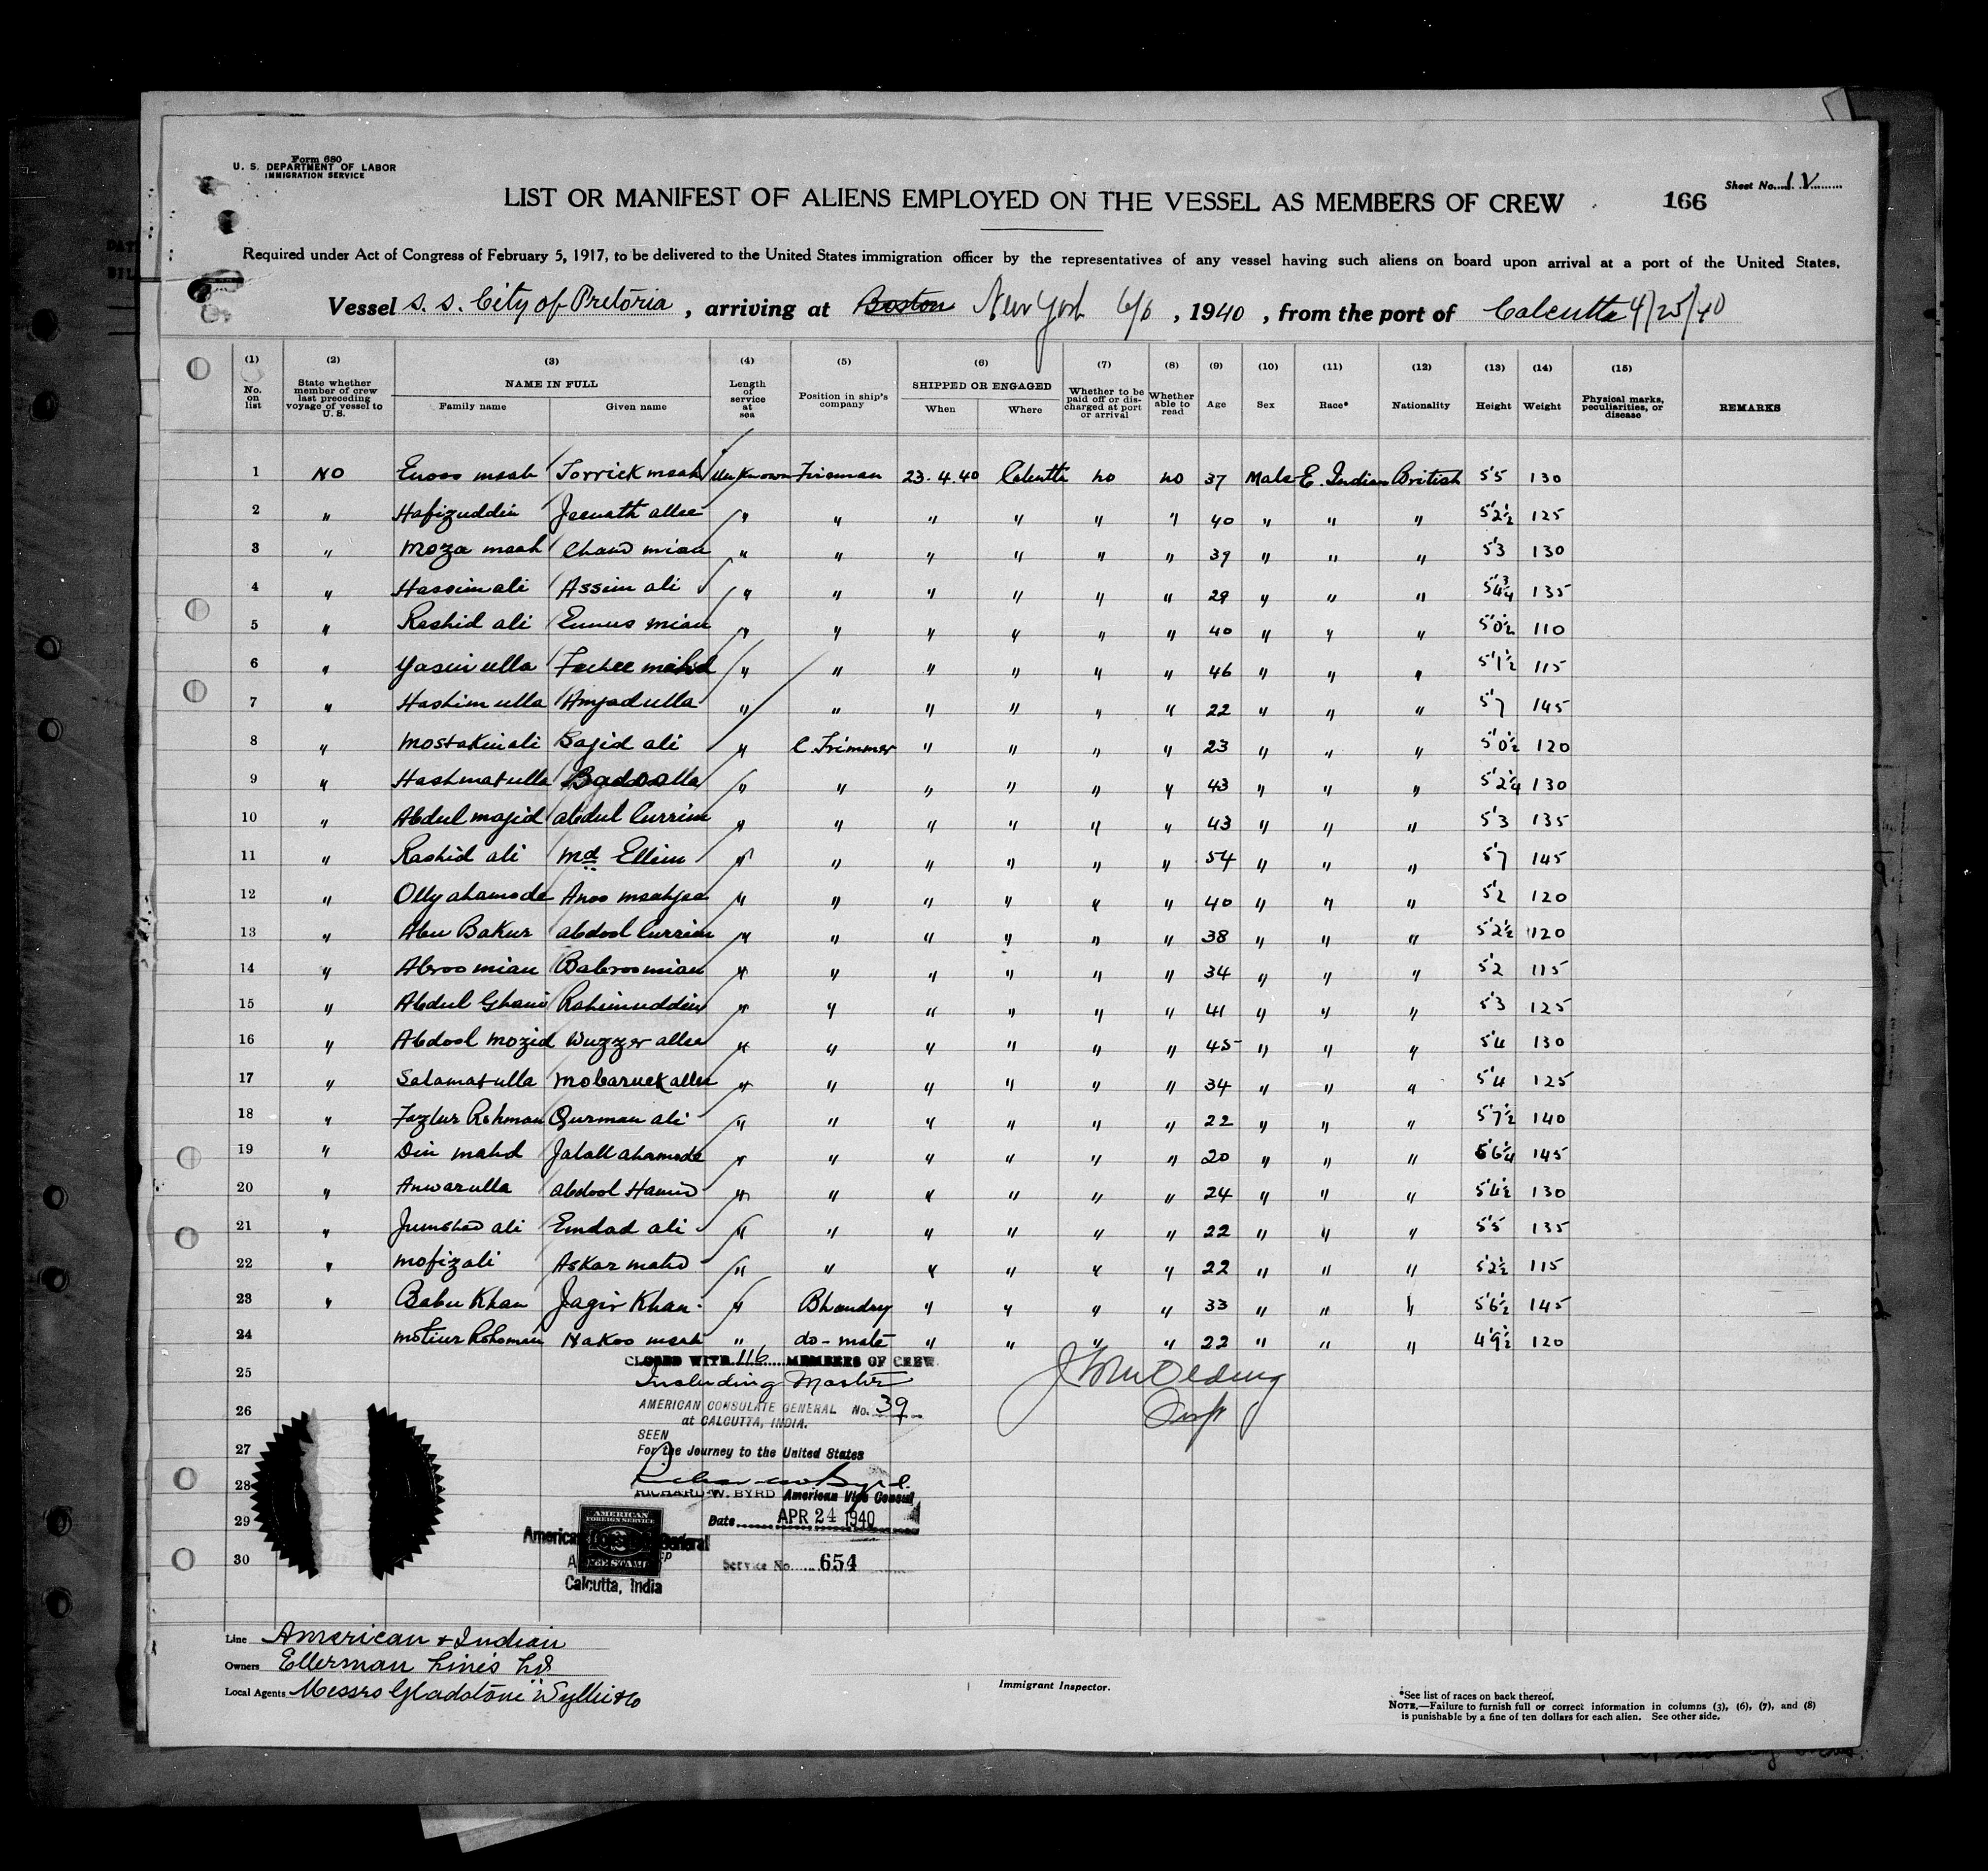 Form 680
U. S. DEPARTMENT OF LABOR
IMMIGRATION SERVICE
Sheet No. IV
LIST OR MANIFEST OF ALIENS EMPLOYED ON THE VESSEL AS MEMBERS OF CREW 166
Required under Act of Congress of February 5, 1917, to be delivered to the United States immigration officer by the representatives of any vessel having such aliens on board upon arrival at a port of the United States.
Vessel S. S. City of Pretoria, arriving at Boston New York 6/6, 1940, from the port of Calcutta 4/25/40
(1) (2) (3) (4) (5) (6) (7) (8) (9) (10) (11) (12) (13) (14) (15)
No. on list State whether member of crew last preceding voyage of vessel to U. S. NAME IN FULL Family name Given name Length of service at sea Position in ship's company SHIPPED OR ENGAGED When Where Whether to be paid off or discharged at port or arrival Whether able to read Age Sex Race* Nationality Height Weight Physical marks, peculiarities, or disease REMARKS
1 NO Enoos meah Torrick meah Unknown Fireman 23.4.40 Calcutta no no 37 Male E. Indian British 5'5 130
2 " Hafizuddin Jeenath allee " " " " " " 40 " " " 5'2½ 125
3 " Moza meah Chand mian " " " " " " 39 " " " 5'3 130
4 " Hassim ali Assim ali " " " " " " 29 " " " 5'4¾ 135
5 " Rashid ali Eunus mian " " " " " " 40 " " " 5'0½ 110
6 " Yasin ulla mahd " " " " " " 46 " " " 5'1½ 115
7 " Hashim ulla Amjad ulla " " " " " " 22 " " " 5'7 145
8 " Mostakin ali Sajid ali " C. Trimmer " " " " 23 " " " 5'0½ 120
9 " Hashmatulla Badoolla " " " " " " 43 " " " 5'2¼ 130
10 " Abdul majid abdul Currim " " " " " " 43 " " " 5'3 135
11 " Rashid ali Md Ellim " " " " " " 54 " " " 5'7 145
12 " Olly ahamode Anoo meahjee " " " " " " 40 " " " 5'2 120
13 " Abu Bakur abdool Currim " " " " " " 38 " " " 5'2½ 120
14 " Abroo mian Babroo mian " " " " " " 34 " " " 5'2 115
15 " Abdul Ghani Rahimuddin " " " " " " 41 " " " 5'3 125
16 " Abdool Mozid Wuzzer allee " " " " " " 45 " " " 5'4 130
17 " Salamatulla Mobaruck allee " " " " " " 34 " " " 5'4 125
18 " Fazlur Rohman Qurman ali " " " " " " 22 " " " 5'7½ 140
19 " Din mahd Jalall ahamode " " " " " " 20 " " " 5'6¼ 145
20 " Anwarulla abdool Hamid " " " " " " 24 " " " 5'4½ 130
21 " Jumshad ali Emdad ali " " " " " " 22 " " " 5'5 135
22 " Mofiz ali Askar mahd " " " " " " 22 " " " 5'2½ 115
23 " Babu Khan Jagir Khan " Bhandry " " " " 33 " " " 5'6½ 145
24 Motiur Rohoman Nakoo meah " do - mate " " " " 22 " " " 4'9½ 120
25
26
27
28
29
30
CLOSED WITH 116 MEMBERS OF CREW
Including Master
AMERICAN CONSULATE GENERAL No. 39
at CALCUTTA, INDIA.
SEEN
For the Journey to the United States
RICHARD W. BYRD American Vice Consul
Date APR 24 1940
Service No. 654
AMERICAN
FOREIGN SERVICE
FEE STAMP
American General
Calcutta, India
Line American & Indian
Owners Ellerman Lines Ld
Local Agents Messrs Gladstone Wyllie & Co
Immigrant Inspector.
*See list of races on back thereof.
NOTE.—Failure to furnish full or correct information in columns (3), (6), (7), and (8)
is punishable by a fine of ten dollars for each alien. See other side.